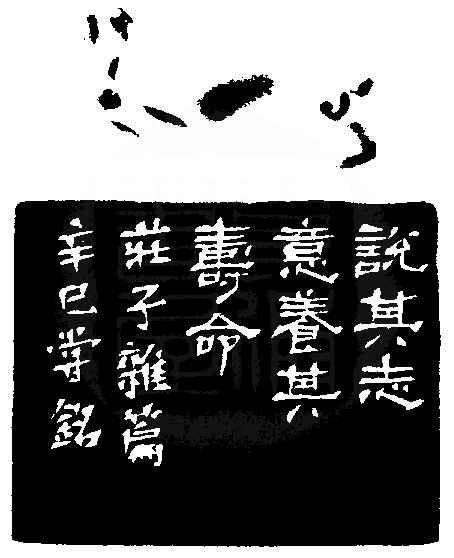 說其志
意養其
壽命
莊子雜篇
辛巳營銘